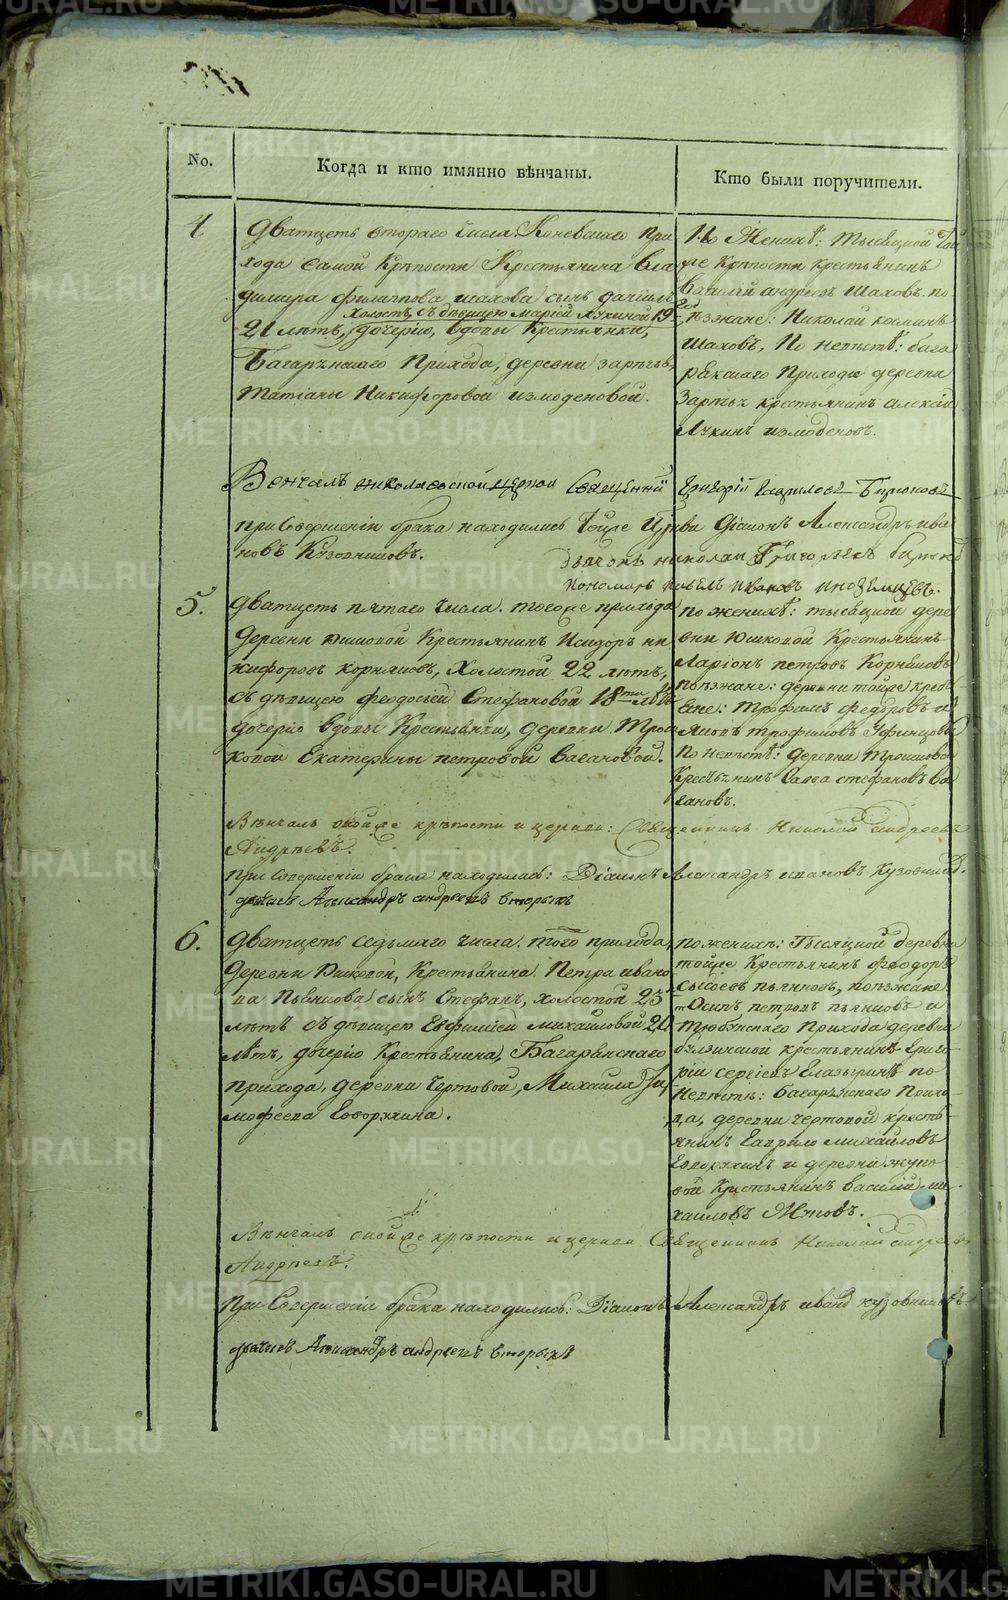 No.
Когда и кто имянно вѣнчаны.
Кто были поручители.
4
Дватцеть втораго числа. Коневскаго При
хода самой Крѣпости Крестьянина Вла
димира Филиппова Шахова сынъ Данiилъ
холостъ, съ дѣвицею Марiей Лукиной 19
21 лѣтъ, дочерiю, вдовы Крестьянки,
Багарѣцкаго Прихода, деревни Зарѣчь
Татiаны Никифоровой Измоденовой.
По Женихѣ: тысяцкой Той
же Крѣпости крестьянинъ
Василiй Андреевъ Шаховъ. по
ѣзжане: Николай Козминъ
Шаховъ, По Невѣстѣ: бага
ряцкаго Прихода деревни
Зарѣчь крестьянинъ Алексѣй
Лукинъ Измоденовъ.
Венчалъ Николаевской церкви Священникъ Григорiй Гавриловъ Бирюковъ
при Совершенiи брака находились Тойже Церкви Дiаконъ Александръ Ива
новъ Кузовниковъ. дьячокъ Николай Григорьевъ
пономарь Павелъ Ивановъ Иноземцевъ.
5.
Дватцеть пятаго числа. тогоже прихода
Деревни Юшковой Крестьянинъ Исидоръ Ни
кифоровъ Корняковъ, Холостой 22 лѣтъ,
съ дѣвицею Феодосьей Стефановой 18ти лѣтъ
дочерiю вдовы Крестьянки, деревни Трош
ковой Екатерины Петровой Вагановой.
по женихѣ: тысяцкой дере
вни Юшковой Крестьянинъ
Ларiонъ Петровъ Корняковъ
поѣзжане: деревни тойже крест
яне: Трофимъ Федоровъ и
Яковъ Трофимовъ
По невѣстѣ: деревни Трошковой
Крестьянинъ Савва Стефановъ Ва
гановъ.
Вѣнчалъ онойже крѣпости и церкви: Священникъ Николай Андреевъ
Андрѣевъ.
При Совершенiи брака находились: Дiаконъ Александръ Ивановъ Кузовниковъ.
дьячекъ Александръ Андреевъ Вторыхъ
6.
Дватцеть седьмаго числа. того прихода,
Деревни Крестьянина Петра Ивано
ва Пьянкова сынъ Стефанъ, холостой 23
лѣтъ съ дѣвицею Евфимiей Михайловой 20
лѣтъ, дочерiю Крестьянина, Багаряцкаго
прихода, деревни Чертовой, Михаила Ти
мофеева Говорухина.
по женихѣ: Тысяцкой деревни
тойже Крестьянинъ Феодоръ
Сысоевъ Пьянковъ, поѣзжане
Осипъ Петровъ Пьянковъ и
Тюбукскаго Прихода деревни
крестьянинъ Григо
рiй Сергiевъ Глазыринъ по
Невѣстѣ: Багаряцкаго Прихо
да, деревни Чертовой кресть
янинъ Гаврило Михайловъ
Говорухинъ и деревни Жуко
вой Крестьянинъ Василiй Ми
хайловъ Жуковъ.
Вѣнчалъ онойже крѣпости и церкви Священникъ Николай Андреевъ
Андрѣевъ.
При Совершенiи брака находились: Дiаконъ Александръ Ивановъ Кузовниковъ
дьячекъ Александръ Андреевъ Вторыхъ
METRIKI.GASO-URAL.RU